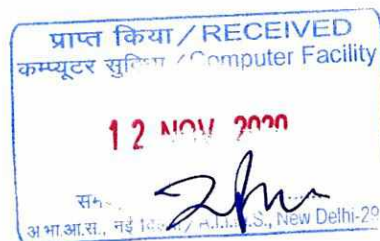 प्राप्त किया / RECEIVED
कम्प्यूटर सुविधा / Computer Facility
12 NOV 2020
अ.भा.आ.स., नई / A.I.I.M.S., New Delhi-29